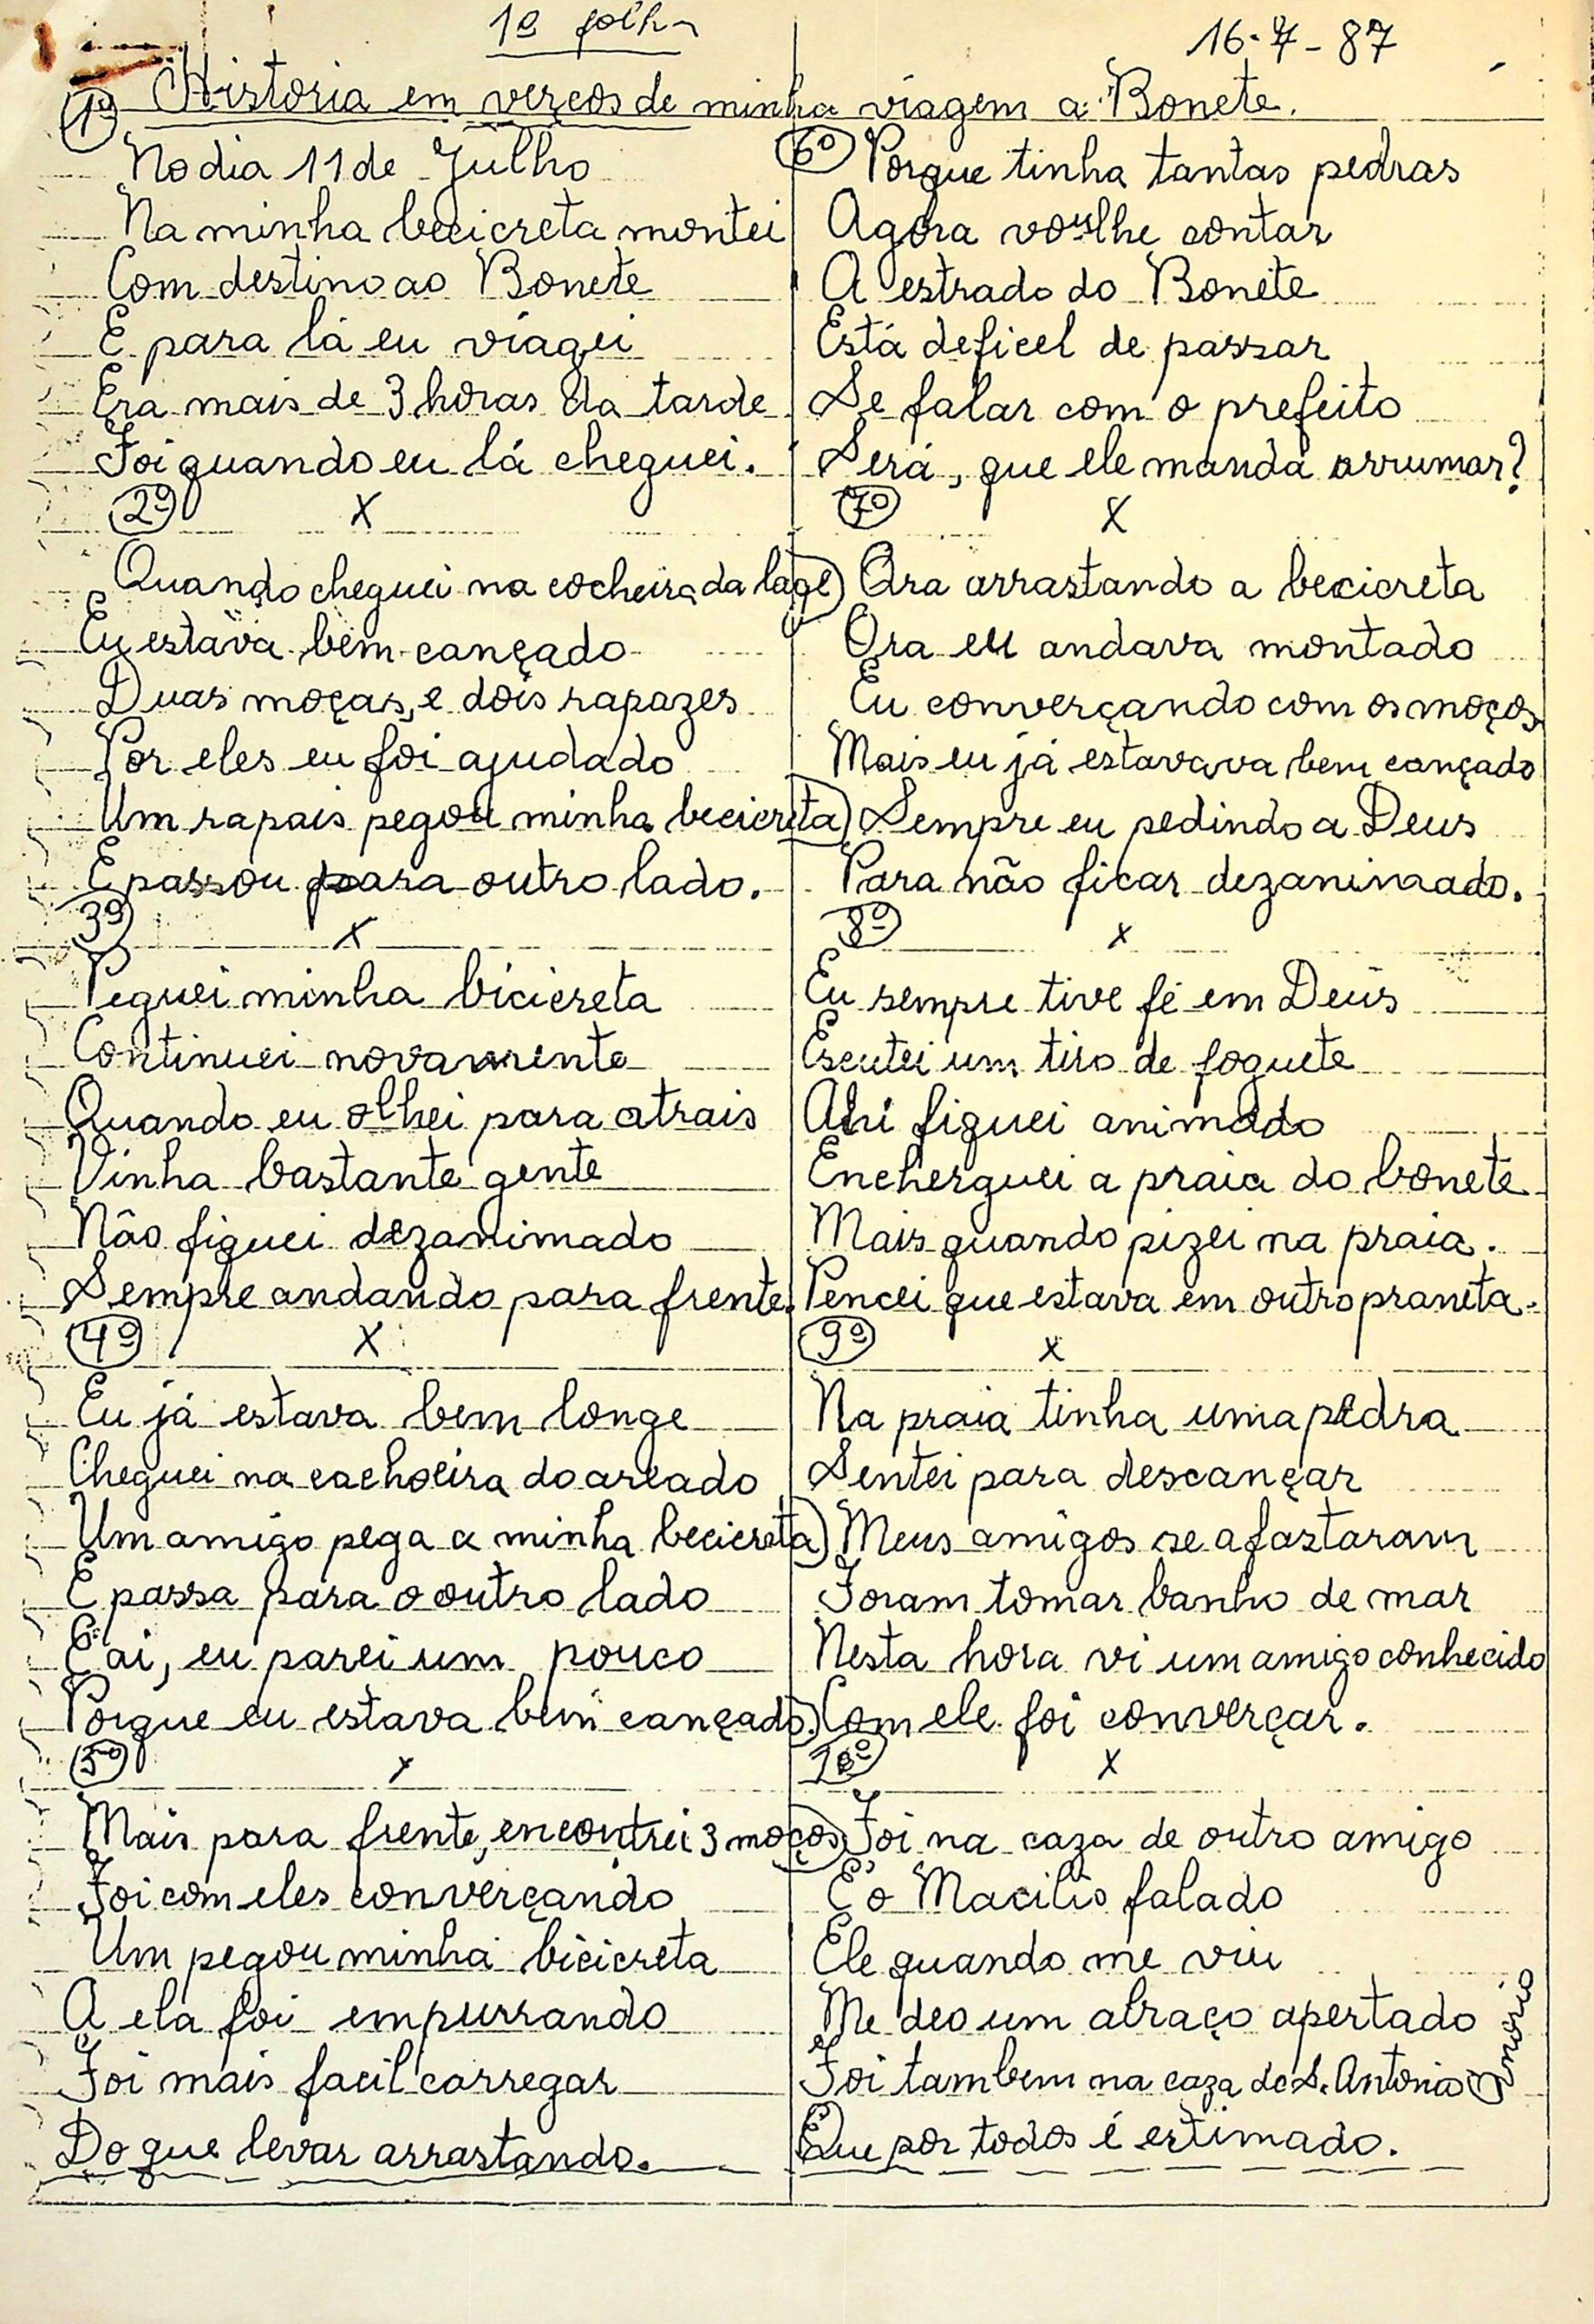 1ª folha
16-7-87
Historia em verços de minha viagem a Bonete.
1º
No dia 11 de Julho
Na minha becicreta montei
Com destino ao Bonete
E para lá eu viagei
Era mais de 3 horas da tarde
Foi quando eu lá cheguei.
2º X
Quando cheguei na cocheira da lage
Eu estava bem cançado
Duas moças, e dois rapazes
Por eles eu foi ajudado
Um rapais pegou minha becicreta
E passou para outro lado.
3º X
Peguei minha bicicreta
Continuei novamente
Quando eu olhei para atrais
Vinha bastante gente
Não fiquei dezanimado
Sempre andando para frente.
4º X
Eu já estava bem longe
Cheguei na cachoeira do areado
Um amigo pega a minha becicreta
E passa para o outro lado
E ai, eu parei um pouco
Porque eu estava bem cançado.
5º X
Mais para frente, encontrei 3 moços
Foi com eles converçando
Um pegou minha bicicreta
A ela foi empurrando
Foi mais facil carregar
Do que levar arrastando.
6º
Porque tinha tantas pedras
Agora vou lhe contar
A estrado do Bonete
Está deficel de passar
Se falar com o prefeito
Será, que ele manda arrumar?
7º X
Ora arrastando a becicreta
Ora eu andava montado
Eu converçando com os moços
Mais eu já estavava bem cançado
Sempre eu pedindo a Deus
Para não ficar dezanimaado.
8º X
Eu sempre tive fé em Deus
Escutei um tiro de foguete
Ahi fiquei animado
Encherguei a praia do bonete
Mais quando pizei na praia.
Pencei que estava em outro praneta.
9º X
Na praia tinha uma pedra
Sentei para descançar
Meus amigos se afastaram
Foram tomar banho de mar
Nesta hora vi um amigo conhecido
Com ele foi converçar.
10º X
Foi na caza de outro amigo
E o Macilio falado
Ele quando me viu
Me deo um abraço apertado
Foi tambem na caza do S. Antonio Onorio
Que por todos é estimado.